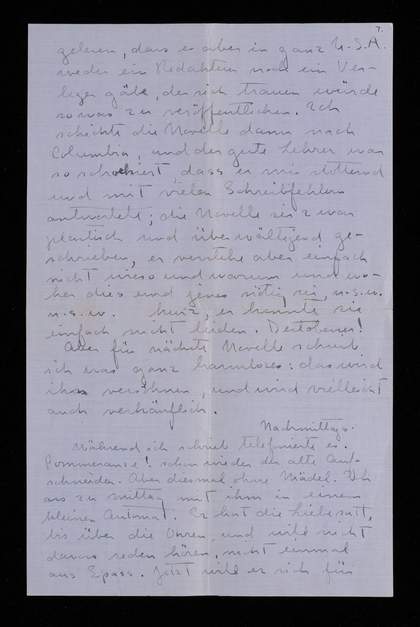 7.
gelesen, dass es aber in ganz U.S.A.
weder ein Redakteur noch ein Ver-
leger gäbe, der sich trauen würde
sowas zu veröffentlichen. Ich
schickte die Novelle dann nach
Columbia, und der gute Lehrer war
so schockiert, dass er mir stotternd
und mit vielen Schreibfehlern
antwortete; die Novelle sei zwar
plastisch und überwältigend ge-
schrieben, er verstehe aber einfach
nicht wieso und warum und wo-
her dies und jenes nötig sei, u.s.w.
u.s.w. Kurz, er konnte sie
einfach nicht leiden.
Aber für nächste Novelle schrieb
ich was ganz harmloses: das wird
ihn versöhnen, und wird vielleicht
auch verkäuflich.
Nachmittags.
Während ich schrieb telefonierte er.
Pommeranze! schon wieder der alte Auf-
schneider. Aber diesmal ohne Mädel. Ich
ass zu mittag mit ihm in einem
kleinen Automat. Er hat die Liebe satt,
bis über die Ohren, und will nicht
davon reden hören, nicht einmal
aus Spass. Jetzt will er sich für